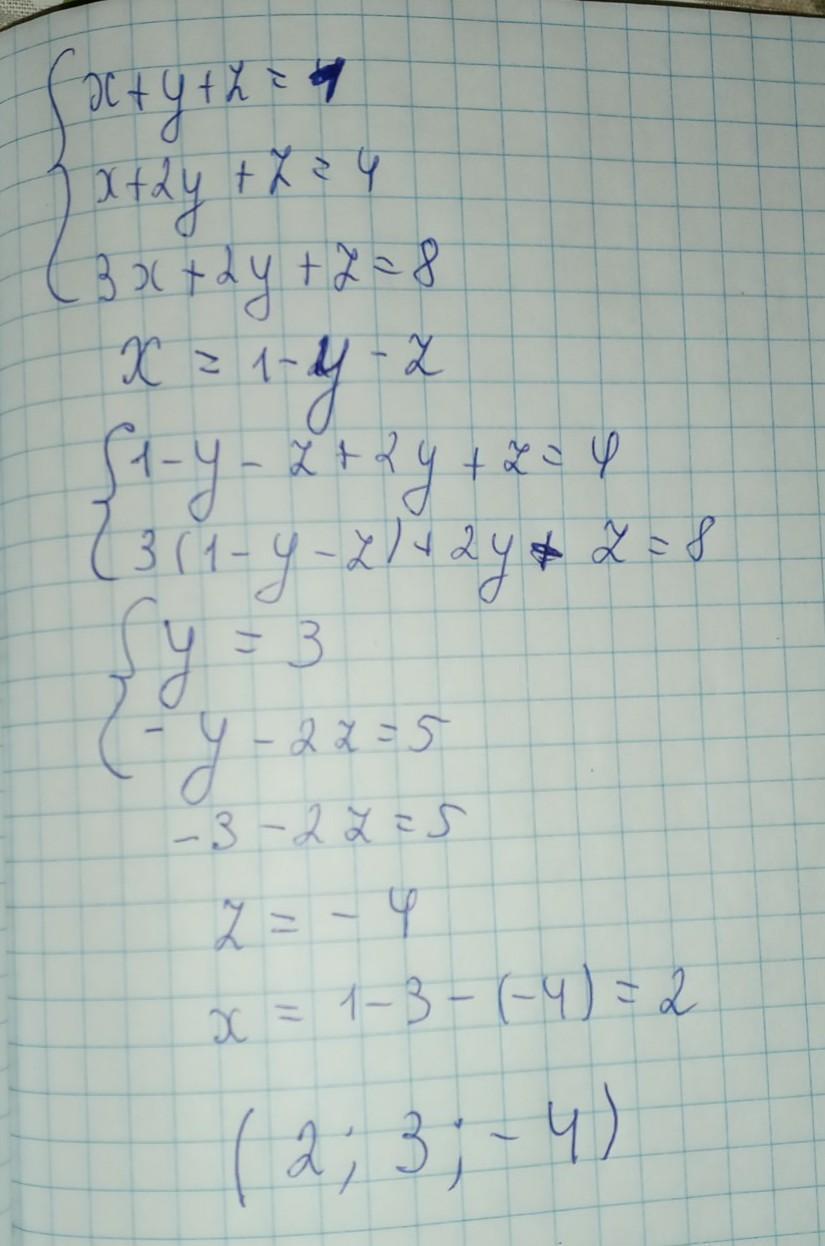 x + y + z = 1
x + 2y + z = 4
3x + 2y + z = 8
x = 1 - y - z
1 - y - z + 2y + z = 4
3(1 - y - z) + 2y + z = 8
y = 3
- y - 2z = 5
- 3 - 2z = 5
z = - 4
x = 1 - 3 - (-4) = 2
(2; 3; - 4)